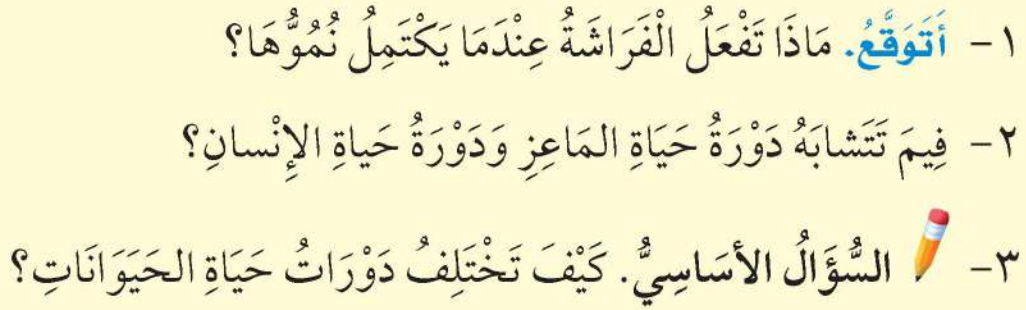 ١ - أَتَوَقَّعُ. مَاذَا تَفْعَلُ الْفَرَاشَةُ عِنْدَمَا يَكْتَمِلُ نُمُوُّهَا؟
٢ - فِيمَ تَتَشابَهُ دَوْرَةُ حَيَاةِ المَاعِزِ وَدَوْرَةُ حَياةِ الإِنْسانِ؟
٣ - السُّؤَالُ الأَسَاسِيُّ. كَيْفَ تَخْتَلِفُ دَوْرَاتُ حَيَاةِ الحَيَوَانَاتِ؟